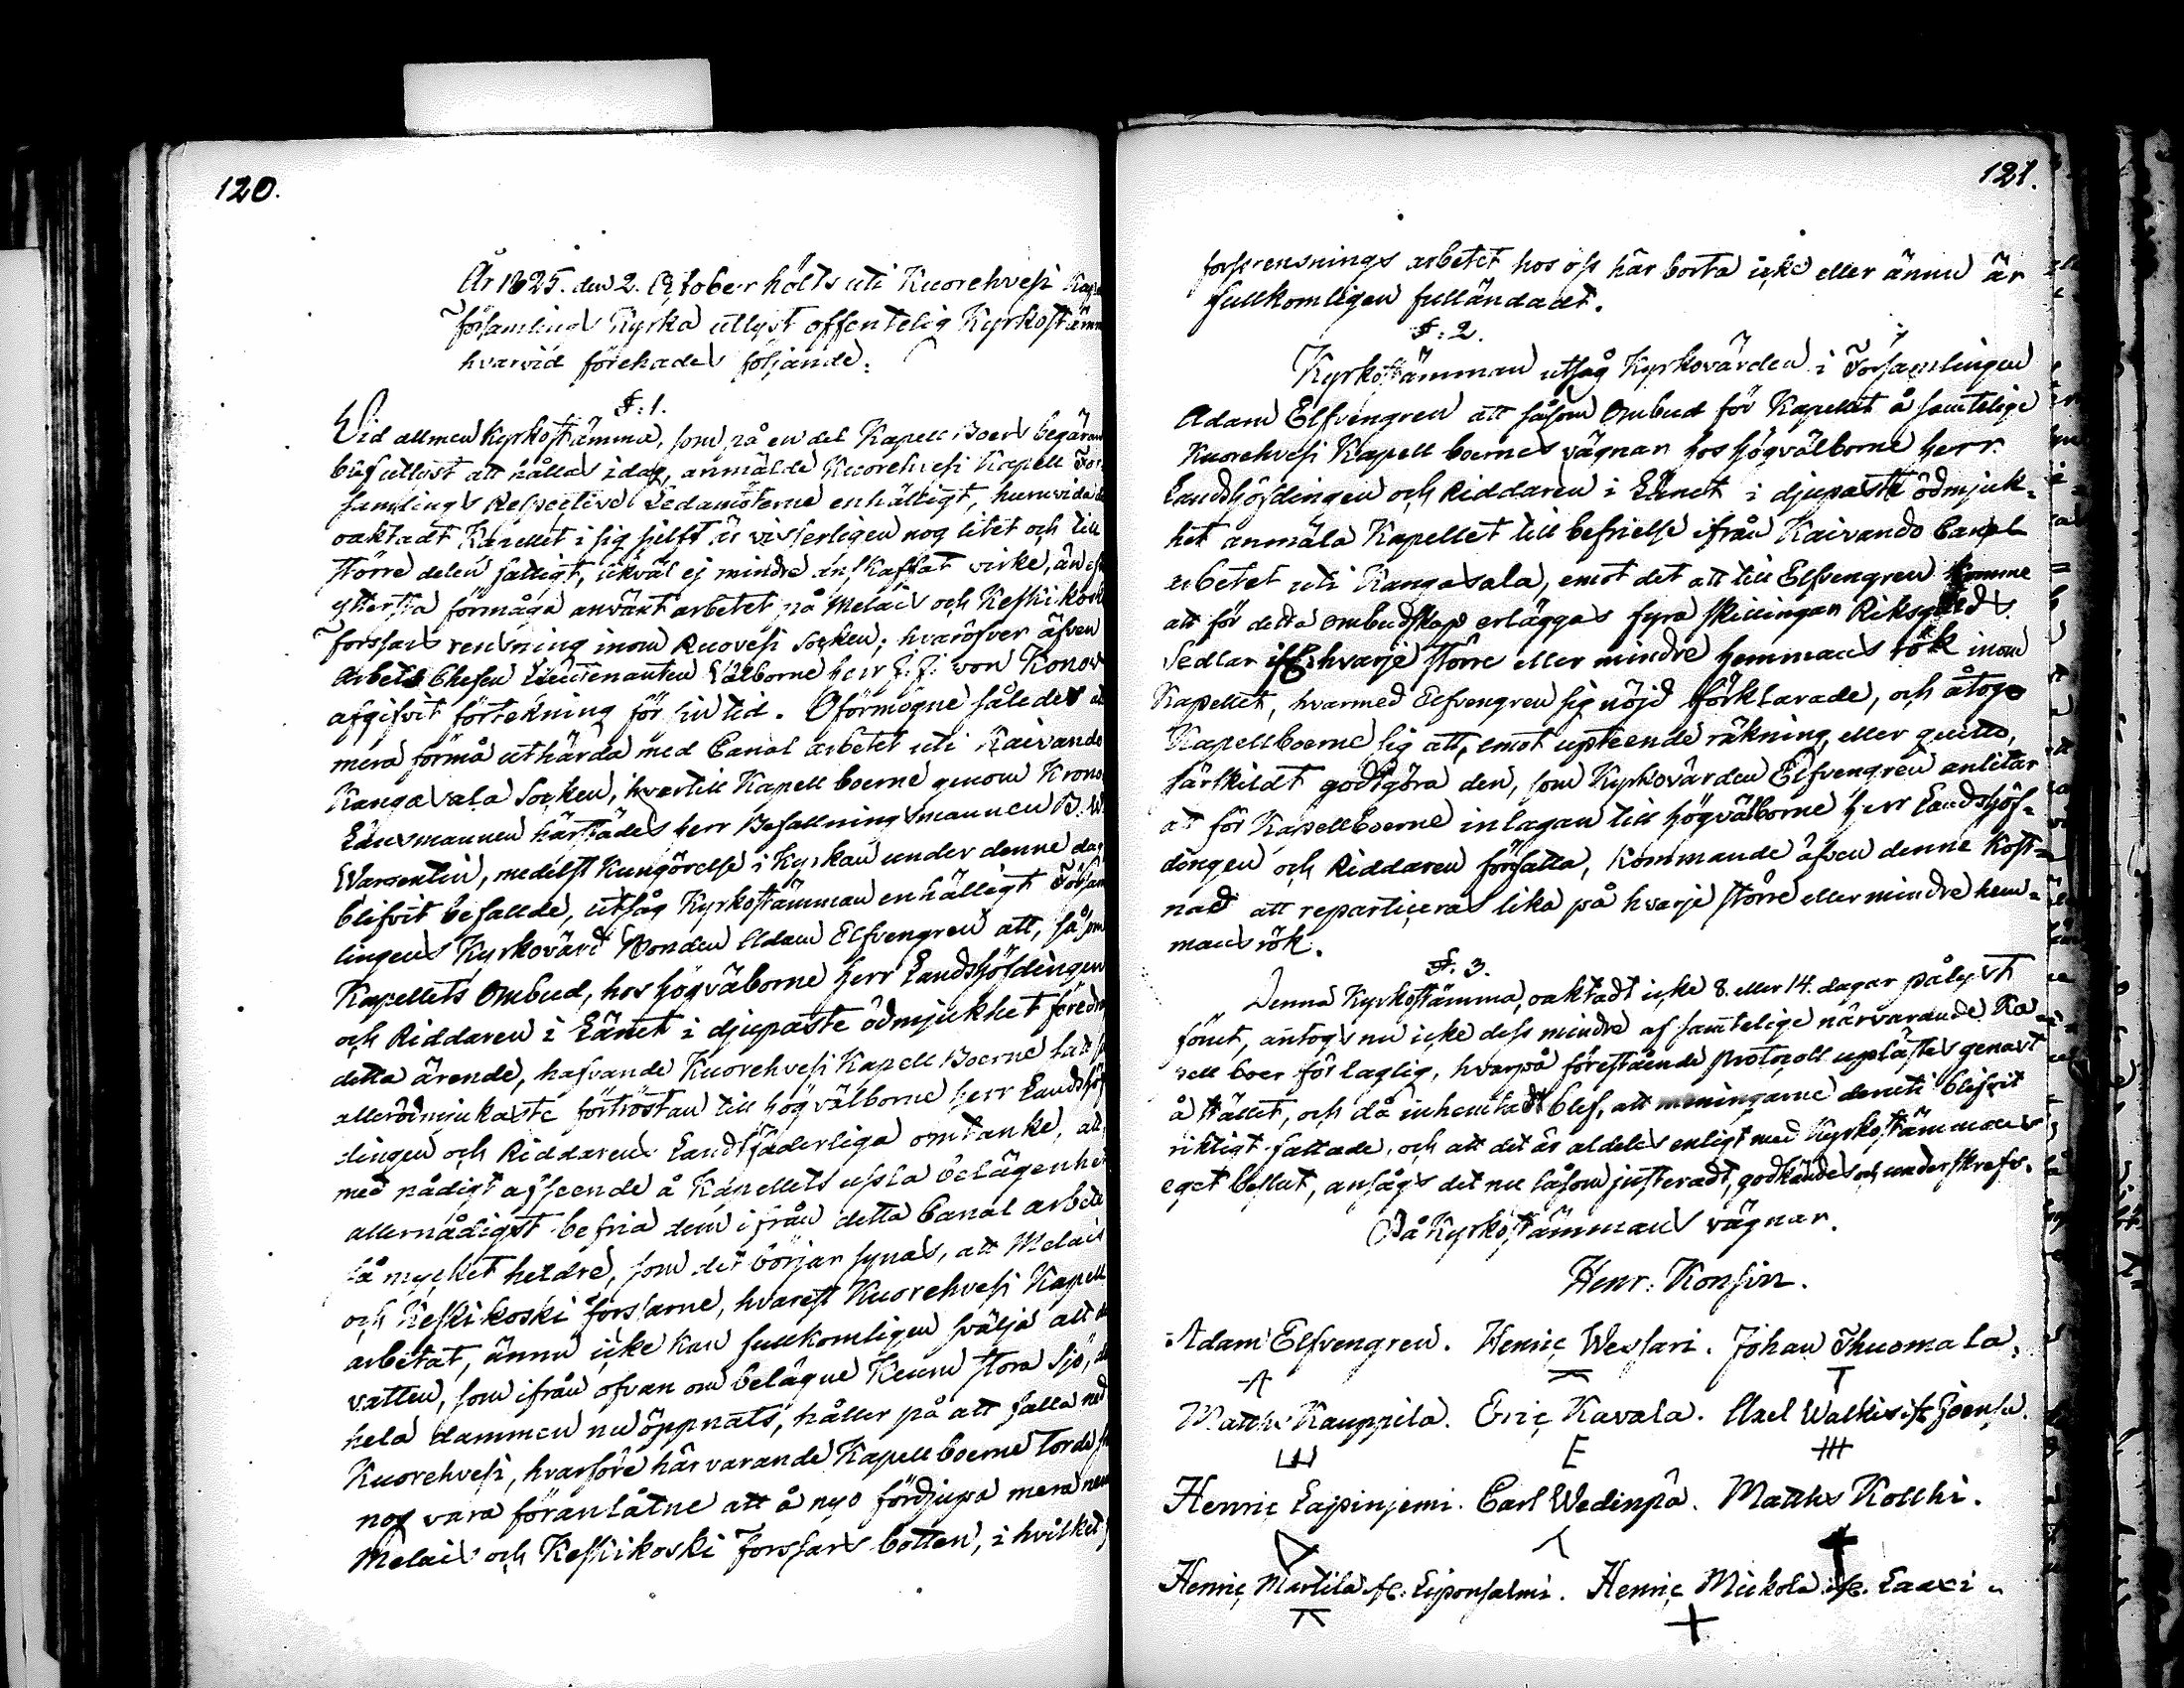 120.
År 1825. den 2. October hölts uti Kuorehvesi
församlings Kyrka utlyst offentelig Kyrkostämm
hvarvid förehades föjande:
§: 1.
Vid allmen Kyrkostämma, som på en del Kapell Boers begäran
blef utlyst att hållas idag, anmälde Kuorehvesi Kapell För
samlings Respective Ledamöterne enhälligt, huruvida de
oaktadt Kapellet i sig sielft är visserligen nog litet och till
större delen fattigt, likväl ej mindre anskaffat virke, än
yttersta förmåga använt arbetet på Melais och Keskikoski
forssars rensning inom Ruovesi Socken; hvaröfver äfven
Arbets Chefen Lieutenanten Välborne herr F: F: von Konow
afgifvit förtekning för sin tid. Oförmögne således att
mera förmå uthärda med Canal arbetet uti Kaivando
Kangasala Socken, hvartill Kapell boerne genom Krono
Länsmannen härstädes herr Befallningsmannen B. W.
Warsentin, medelst Kungörelse i Kyrkan under denne dag
blifvit befallde, utsåg Kyrkostämman enhälligt Försam
lingens Kyrkovärd Bonden Adam Elfvengren att, såsom
Kapellets Ombud, hos högväborne herr Landshöfdingen
och Riddaren i Länet i djupaste ödmjukhet föredra
detta ärende, hafvande Kuorehvesi Kapell Boerne
allerödmjukaste förtröstan till högvälborne herr Landshöf
dingen och Riddarens Landtfaderliga omtanke, att
med nådigt afseende å Kapellets usla belägenhet
allernådigst befria dem ifrån detta Canal arbete
så mycket heldre, som det börjar synas, att Melais
och Keskikoski forssarne, hvarest Kuorehvesi Kapell
arbetat, ännu icke kan fullkomligen svälja allt
vatten, som ifrån ofvan om belägne Keuru stora sjö,
hela dammen nu öppnats, håller på att falla ned
Kuorehvesi, hvarföre härvarande Kapellboerne torde
nog vara föranlåtne att å nyo fördjupa mera
Melais och Keskikoski forssars botten, i hvilket
121.
forssrensnings arbetet hos oss här borta icke eller ännu är
fullkomligen fulländadt.
§: 2.
Kyrkostämman utsåg Kyrkovärden i Församlingen
Adam Elfvengren att såsom Ombud för Kapellet å samtelige
Kuorehvesi Kapell boernes vägnar hos högvälborne herr
Landshöfdingen och Riddaren i Länet i djupaste ödmjuk-
het anmäla Kapellet till befrielse ifrån Kaivando Canal
arbetet uti Kangasala, emot det att till Elfvengren komme
att för detta ombudskap erläggas fyra skillingar Riksgälds
Sedlar hvarje större eller mindre hemmans rök inom
Kapellet, hvarmed Elfvengren sig nöjd förklarade, och åtogo
Kapellboerne sig att, emot upteende räkning, eller quitto,
särskildt godtgöra den, som Kyrkovärden Elfvengren anlitar
att för Kapellboerne inlagan till högvälborne herr Landshöf-
dingen och Riddaren författa, kommande äfven denne kost-
nad att reparticeras lika på hvarje större eller mindre hem-
mans rök.
§: 3.
Denna Kyrkostämma, oaktadt icke 8. eller 14. dagar pålyst
förut, antogs nu icke dess mindre af samtelige närvarande Ka-
pell boer för laglig, hvarpå förestående Protocoll uplästes genast
å stället, och då inhemtadt blef, att meningarne deruti blifvit
riktigt fattade, och att det är aldeles enligt med Kyrkostämmans
eget beslut, ansågs det nu såsom justeradt, godkändes och underskrefs.
På Kyrkostämmans vägnar.
Henr: Konsin.
Adam Elfvengren. Henric Wessari. Johan Thuomala.
Matths Kauppila. Eric Kavala. Axel Joensu.
Henric Lapinjemi. Carl Wedinpä. Matths Kolkki.
Henric Martila Liponsalmi. Henric Mickola Laaxi